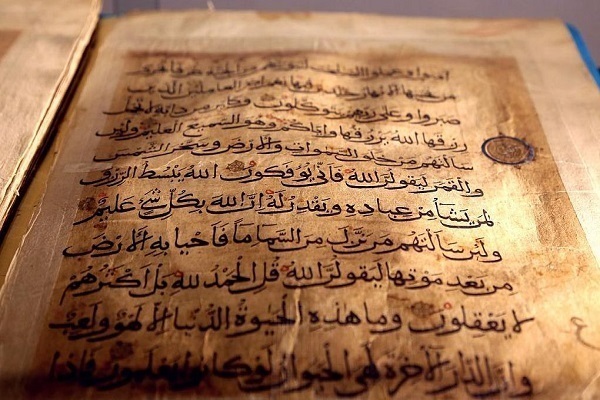 امنوا وعملوا الصالحات لنبوئنهم من الجنة غرفا تجري
من تحتها الانهار خالدين فيها نعم اجر العاملين الذين
صبروا وعلى ربهم يتوكلون وكاين من دابة لا تحمل
رزقها الله يرزقها واياكم وهو السميع العليم ولئن
سالتهم من خلق السموات والارض وسخر الشمس
والقمر ليقولن الله فانى يؤفكون الله يبسط الرزق
لمن يشاء من عباده ويقدر له ان الله بكل شيء عليم
ولئن سالتهم من نزل من السماء ماء فاحيا به الارض
من بعد موتها ليقولن الله قل الحمد لله بل اكثرهم
لا يعقلون وما هذه الحيوة الدنيا الا لهو ولعب
وان الدار الاخرة لهي الحيوان لو كانوا يعلمون فاذا
ع